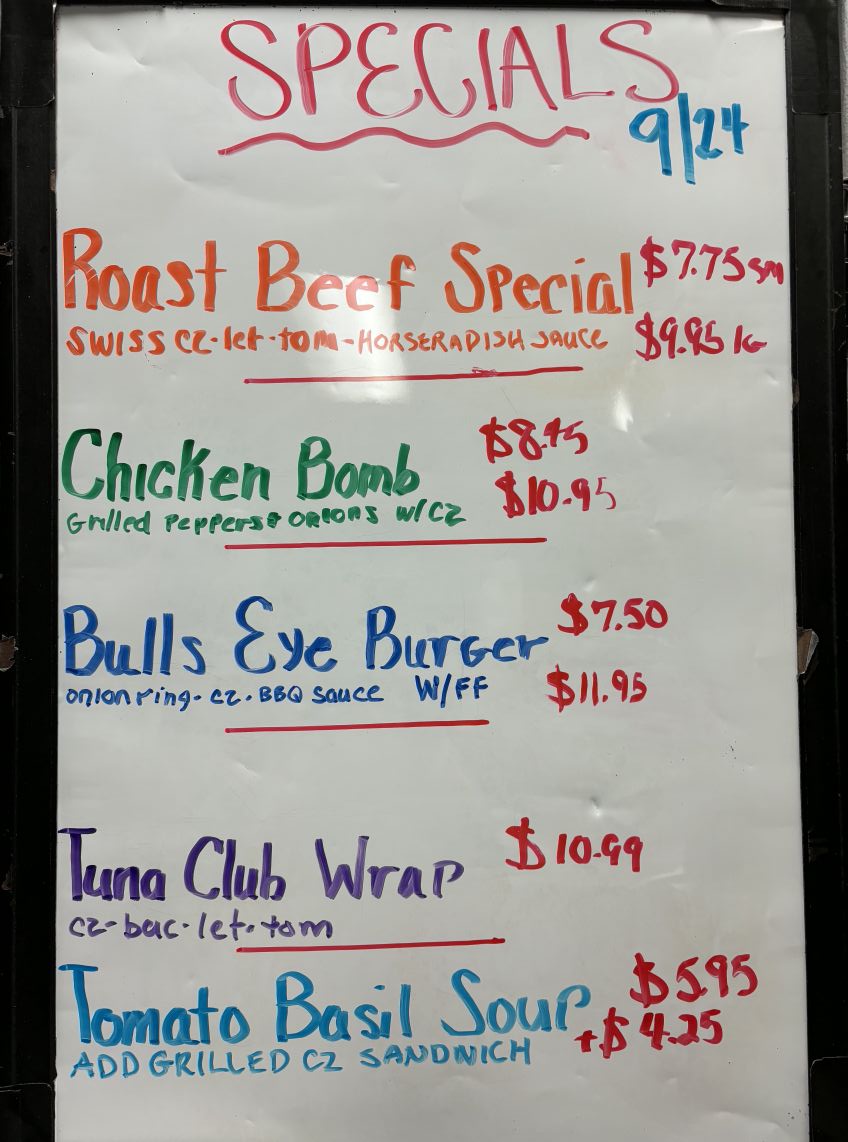 SPECIALS
9/24
Roast Beef Special $7.75 sm
SWISS CZ-let-tom-HORSERADISH SAUCE $9.95 lG
Chicken Bomb
$10.95
Grilled Peppers & onions w/CZ
Bulls Eye Burger $7.50
onion ring-cz-BBQ sauce W/FF $11.95
Tuna Club Wrap $10.99
cz-bac-let-tom
Tomato Basil Soup $5.95
ADD GRILLED CZ SANDWICH +$4.25